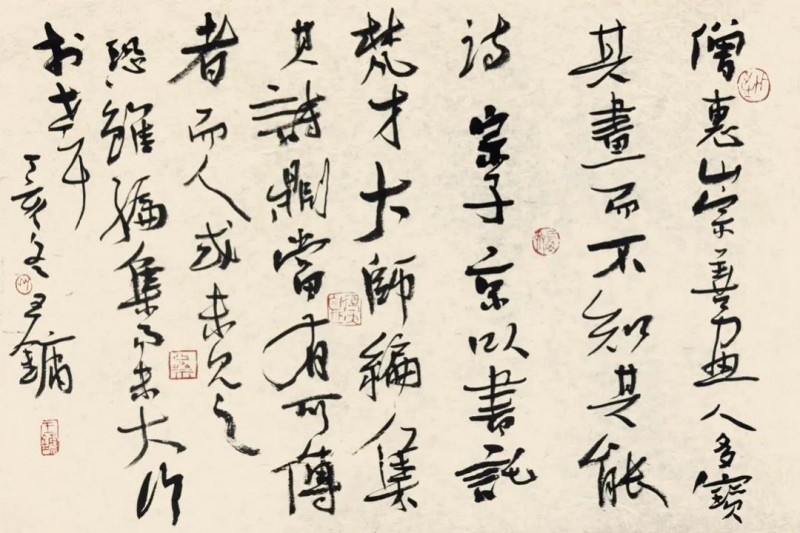 僧惠崇善画人多寶
其畫而不知其能
詩宗子京以書託
梵才大師編集
其詩則當有可傳
者而人或未見之
恐雖編集而未大行
於世耳丁亥冬王鏞